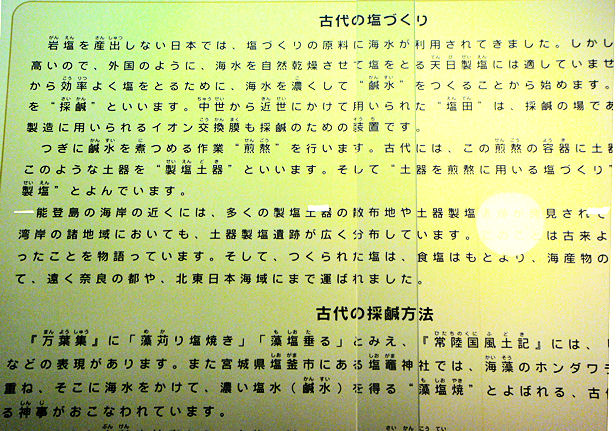 古代の塩づくり
岩塩を産出しない日本では、塩づくりの原料に海水が利用されてきました。しかし
高いので、外国のように、海水を自然乾燥させて塩をとる天日製塩には適していませ
から効率よく塩をとるために、海水を濃くして“鹹水”をつくることから始めます。
を“採鹹”といいます。中世から近世にかけて用いられた“塩田”は、採鹹の場であ
製造に用いられるイオン交換膜も採鹹のための装置です。
つぎに鹹水を煮つめる作業“煎熬”を行います。古代には、この煎熬の容器に土器
このような土器を“製塩土器”といいます。そして“土器を煎熬に用いる塩づくり”
製塩”とよんでいます。
能登島の海岸の近くには、多くの製塩土器の散布地や土器製塩 見されて
湾岸の諸地域においても、土器製塩遺跡が広く分布しています。 は古来よ
ったことを物語っています。そして、つくられた塩は、食塩はもとより、海産物の
て、遠く奈良の都や、北東日本海域にまで運ばれました。
古代の採鹹方法
『万葉集』に「藻苅り塩焼き」「藻塩垂る」とみえ、『常陸国風土記』には、
などの表現があります。また宮城県塩釜市にある塩竈神社では、海藻のホンダワ
重ね、そこに海水をかけて、濃い塩水（鹹水）を得る“藻塩焼”とよばれる、古
る神事がおこなわれています。